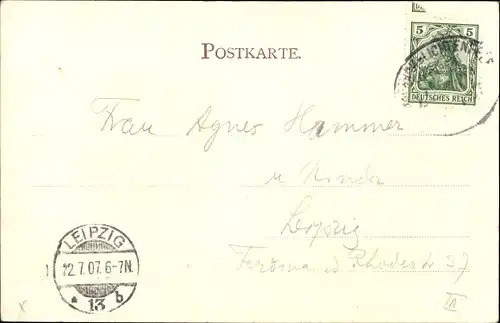 POSTKARTE.
5 5
DEUTSCHES REICH
Frau Agnes Hammer
u Kinder
Leipzig
Ferdinand Rhodestr 37
III
LEIPZIG
12.7.07. 6-7N.
* 13 b